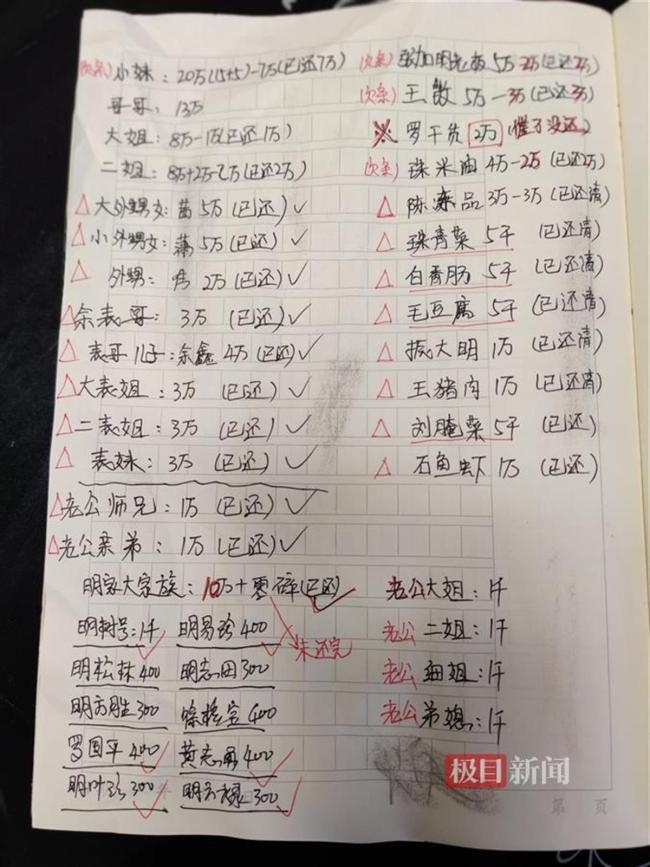 (欠条) 小妹: 20万(15+5)-7万(已还7万)
哥哥: 13万
大姐: 8万-1万(已还1万)
二姐: 8万+2万-2万(已还2万)
△大外甥女: 5万(已还)✓
△小外甥女: 5万(已还)✓
△ 外甥: 2万(已还)✓
△余表哥: 3万 (已还)✓
△表哥儿子:余鑫 4万(已还)✓
△大表姐: 3万 (已还)✓
△二表姐: 3万 (已还)✓
△ 表妹: 3万 (已还)✓
△老公师兄: 1万 (已还)✓
△老公亲弟: 1万 (已还)✓
明家大家族: 10万+零碎(已还)✓
未还完
明树号:1千 明易珍400
明松林400 明志田300
明方胜300 400
罗国平400 黄志勇400
明叶珍300 明方禄300
(欠条) 加明老板 5万-2万(已还2万)
(欠条) 王数 5万-3万(已还3万)
※ 罗干货 2万 (催了没还)
(欠条) 珠米油 4万-2万(已还2万)
△ 陈冻品 3万-3万(已还清)
△ 珠青菜 5千 (已还清)
△ 白香肠 5千 (已还清)
△ 毛豆腐 5千 (已还清)
△ 振大明 1万 (已还清)
△ 王猪肉 1万 (已还清)
△ 刘腌菜 5千 (已还)
△ 石鱼虾 1万 (已还)
老公大姐: 1千
老公二姐: 1千
老公细姐: 1千
老公弟媳: 1千
极目新闻
第 页